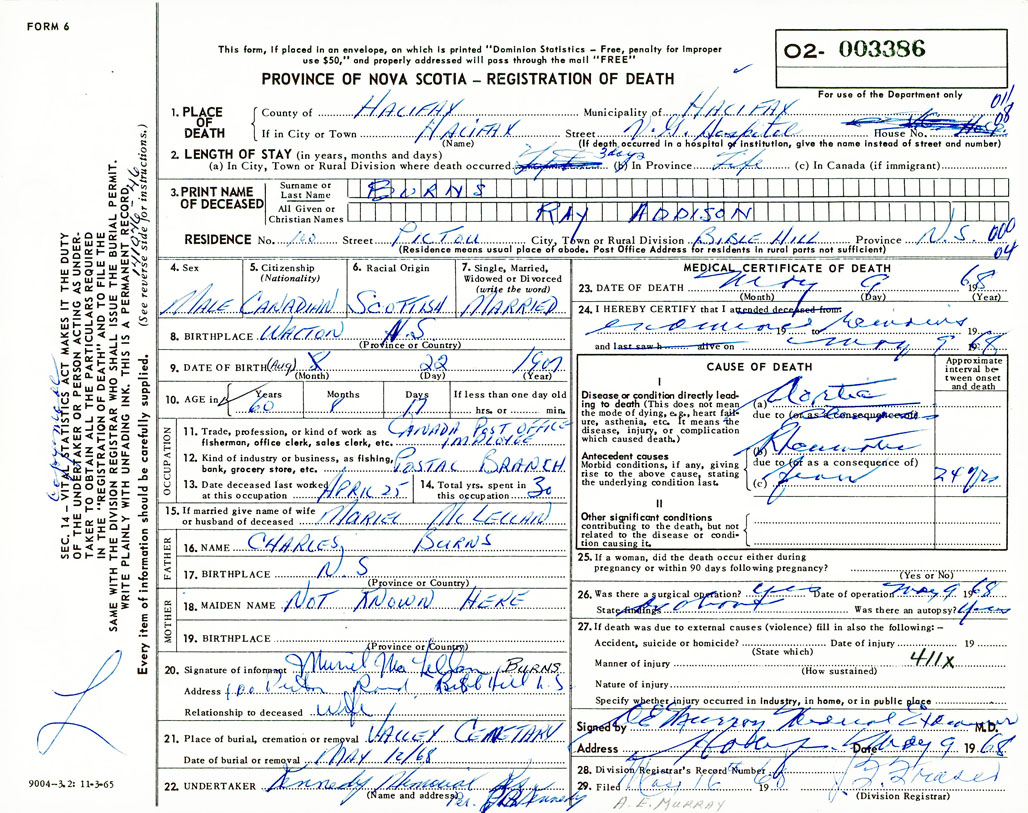 FORM 6
This form, if placed in an envelope, on which is printed "Dominion Statistics – Free, penalty for improper
use $50," and properly addressed will pass through the mail "FREE"
O2- 003386
PROVINCE OF NOVA SCOTIA – REGISTRATION OF DEATH
For use of the Department only
011
08
1. PLACE OF DEATH
County of HALIFAX Municipality of HALIFAX
If in City or Town HALIFAX Street V.G. Hospital House No.
(Name) (If death occurred in a hospital or institution, give the name instead of street and number)
2. LENGTH OF STAY (in years, months and days)
(a) In City, Town or Rural Division where death occurred 3 days (b) In Province Life (c) In Canada (if immigrant)
3. PRINT NAME OF DECEASED
Surname or Last Name BURNS
All Given or Christian Names RAY ADDISON
RESIDENCE No. 100 Street PICTOU City, Town or Rural Division BIBLE HILL Province N.S. 000
04
(Residence means usual place of abode. Post Office Address for residents in rural parts not sufficient)
4. Sex
MALE
5. Citizenship (Nationality)
CANADIAN
6. Racial Origin
SCOTTISH
7. Single, Married, Widowed or Divorced (write the word)
MARRIED
8. BIRTHPLACE WALTON N.S
(Province or Country)
9. DATE OF BIRTH (Aug) 8 22 1907
(Month) (Day) (Year)
10. AGE in Years Months Days If less than one day old
60 8 17 hrs. or min.
OCCUPATION
11. Trade, profession, or kind of work as fisherman, office clerk, sales clerk, etc. CANADA POST OFFICE EMPLOYEE
12. Kind of industry or business, as fishing, bank, grocery store, etc. POSTAL BRANCH
13. Date deceased last worked at this occupation APRIL 25
14. Total yrs. spent in this occupation 30
15. If married give name of wife or husband of deceased MURIEL McLELLAN
FATHER
16. NAME CHARLES BURNS
17. BIRTHPLACE N.S
(Province or Country)
MOTHER
18. MAIDEN NAME NOT KNOWN HERE
19. BIRTHPLACE
(Province or Country)
20. Signature of informant Muriel MacLellan BURNS
Address 100 Pictou Road Bible Hill N.S
Relationship to deceased wife
21. Place of burial, cremation or removal VALLEY CEMETARY
Date of burial or removal MAY 12/68
22. UNDERTAKER Kennedy Memorial
(Name and address) Per.
MEDICAL CERTIFICATE OF DEATH
23. DATE OF DEATH May 9 1968
(Month) (Day) (Year)
24. I HEREBY CERTIFY that I attended deceased from
examined remains 19 to 19
and last saw h alive on May 9 1968
CAUSE OF DEATH
Approximate interval between onset and death
I
Disease or condition directly leading to death (This does not mean the mode of dying, e.g., heart failure, asthenia, etc. It means the disease, injury, or complication which caused death.)
(a)
due to (or as a consequence of)
Antecedent causes
Morbid conditions, if any, giving rise to the above cause, stating the underlying condition last.
(b) Rheumatic
due to (or as a consequence of)
(c) 24 yrs
II
Other significant conditions contributing to the death, but not related to the disease or condition causing it.
25. If a woman, did the death occur either during
pregnancy or within 90 days following pregnancy?
(Yes or No)
26. Was there a surgical operation? yes Date of operation May 9 1968
State findings as above Was there an autopsy? yes
27. If death was due to external causes (violence) fill in also the following: –
Accident, suicide or homicide? Date of injury 19
(State which)
Manner of injury 411X
(How sustained)
Nature of injury
Specify whether injury occurred in industry, in home, or in public place
Signed by A E Murray Medical Examiner M.D.
Address Date May 9 1968
28. Division Registrar's Record Number
29. Filed May 16 1968 Fraser
(Division Registrar)
A. E. MURRAY
9004–3.2: 11-3-65
SEC. 14 – VITAL STATISTICS ACT MAKES IT THE DUTY
OF THE UNDERTAKER OR PERSON ACTING AS UNDER-
TAKER TO OBTAIN ALL THE PARTICULARS REQUIRED
IN THE "REGISTRATION OF DEATH" AND TO FILE THE
SAME WITH THE DIVISION REGISTRAR WHO SHALL ISSUE THE BURIAL PERMIT.
WRITE PLAINLY WITH UNFADING INK. THIS IS A PERMANENT RECORD.
Every item of information should be carefully supplied. (See reverse side for instructions.)